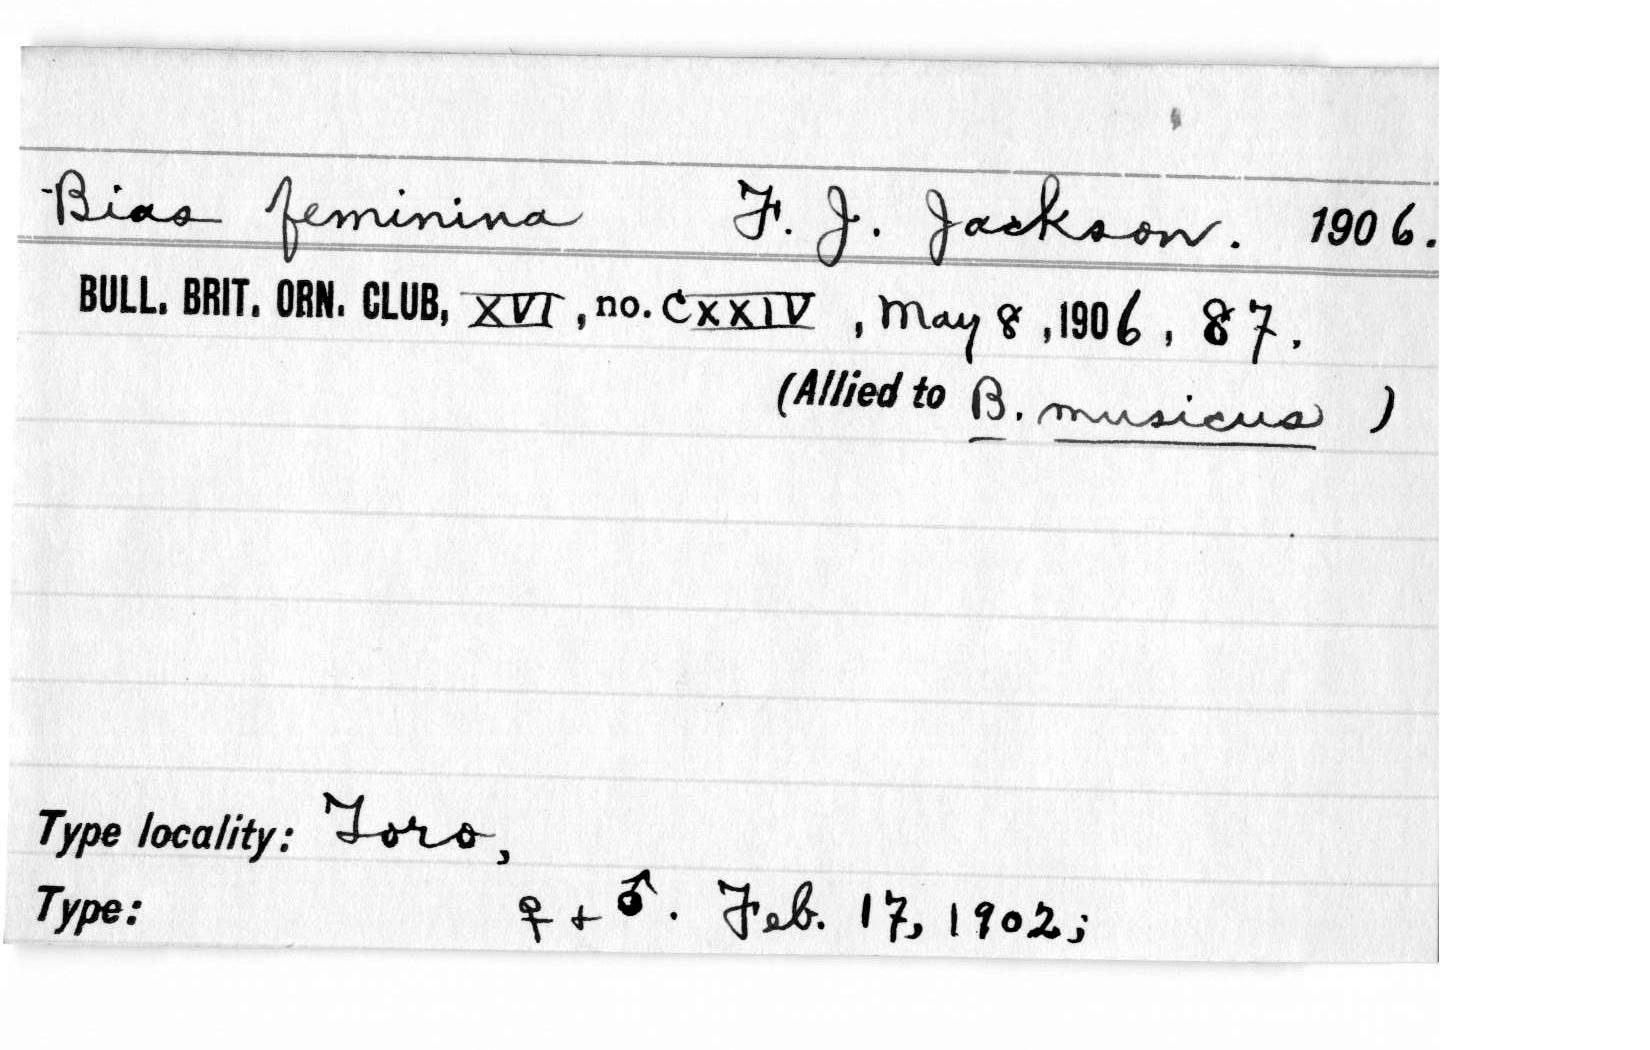 Bias feminina F. J. Jackson. 1906.
BULL. BRIT. ORN. CLUB, XVI, no. CXXIV, May 8, 1906, 87.
(Allied to B. musicus)
Type locality: Toro,
Type: ♀ + ♂. Feb. 17, 1902;